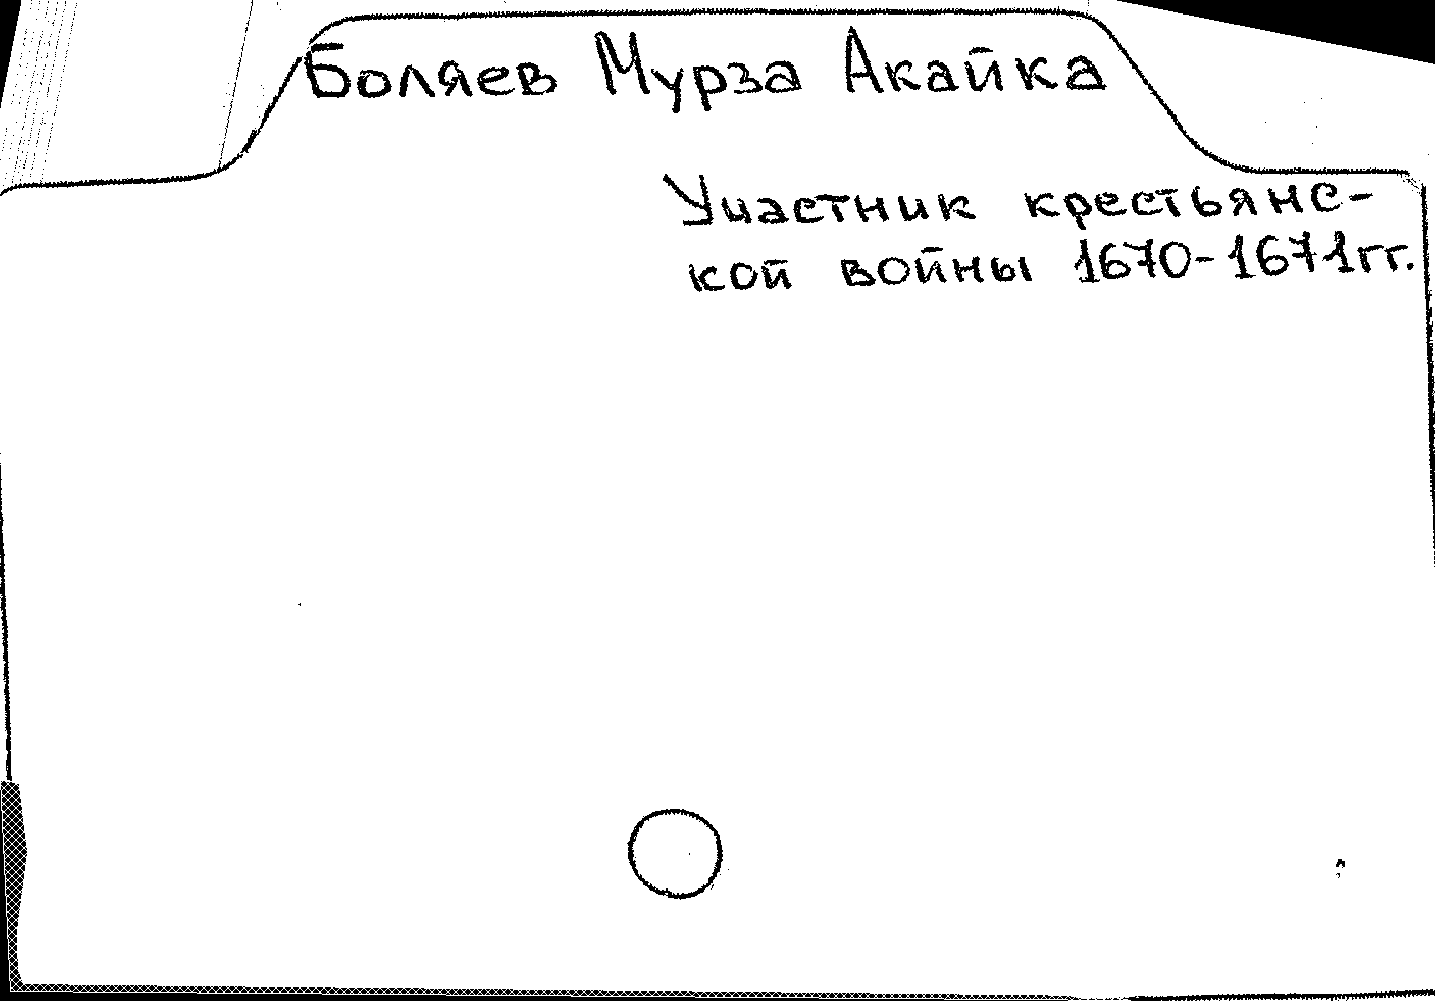 Боляев Мурза Акайка
Участник крестьянс-
кой войны 1670-1671гг.